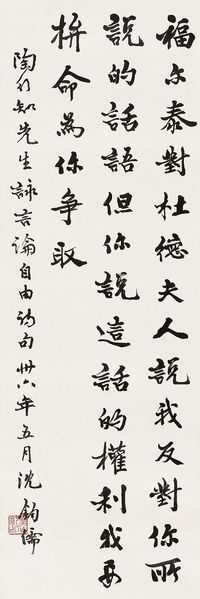 福尔泰對杜德夫人說我反對你所
說的話語但你說這話的權利我要
拚命為你爭取
陶行知先生詠言論自由詩句卅六年五月沈鈞儒